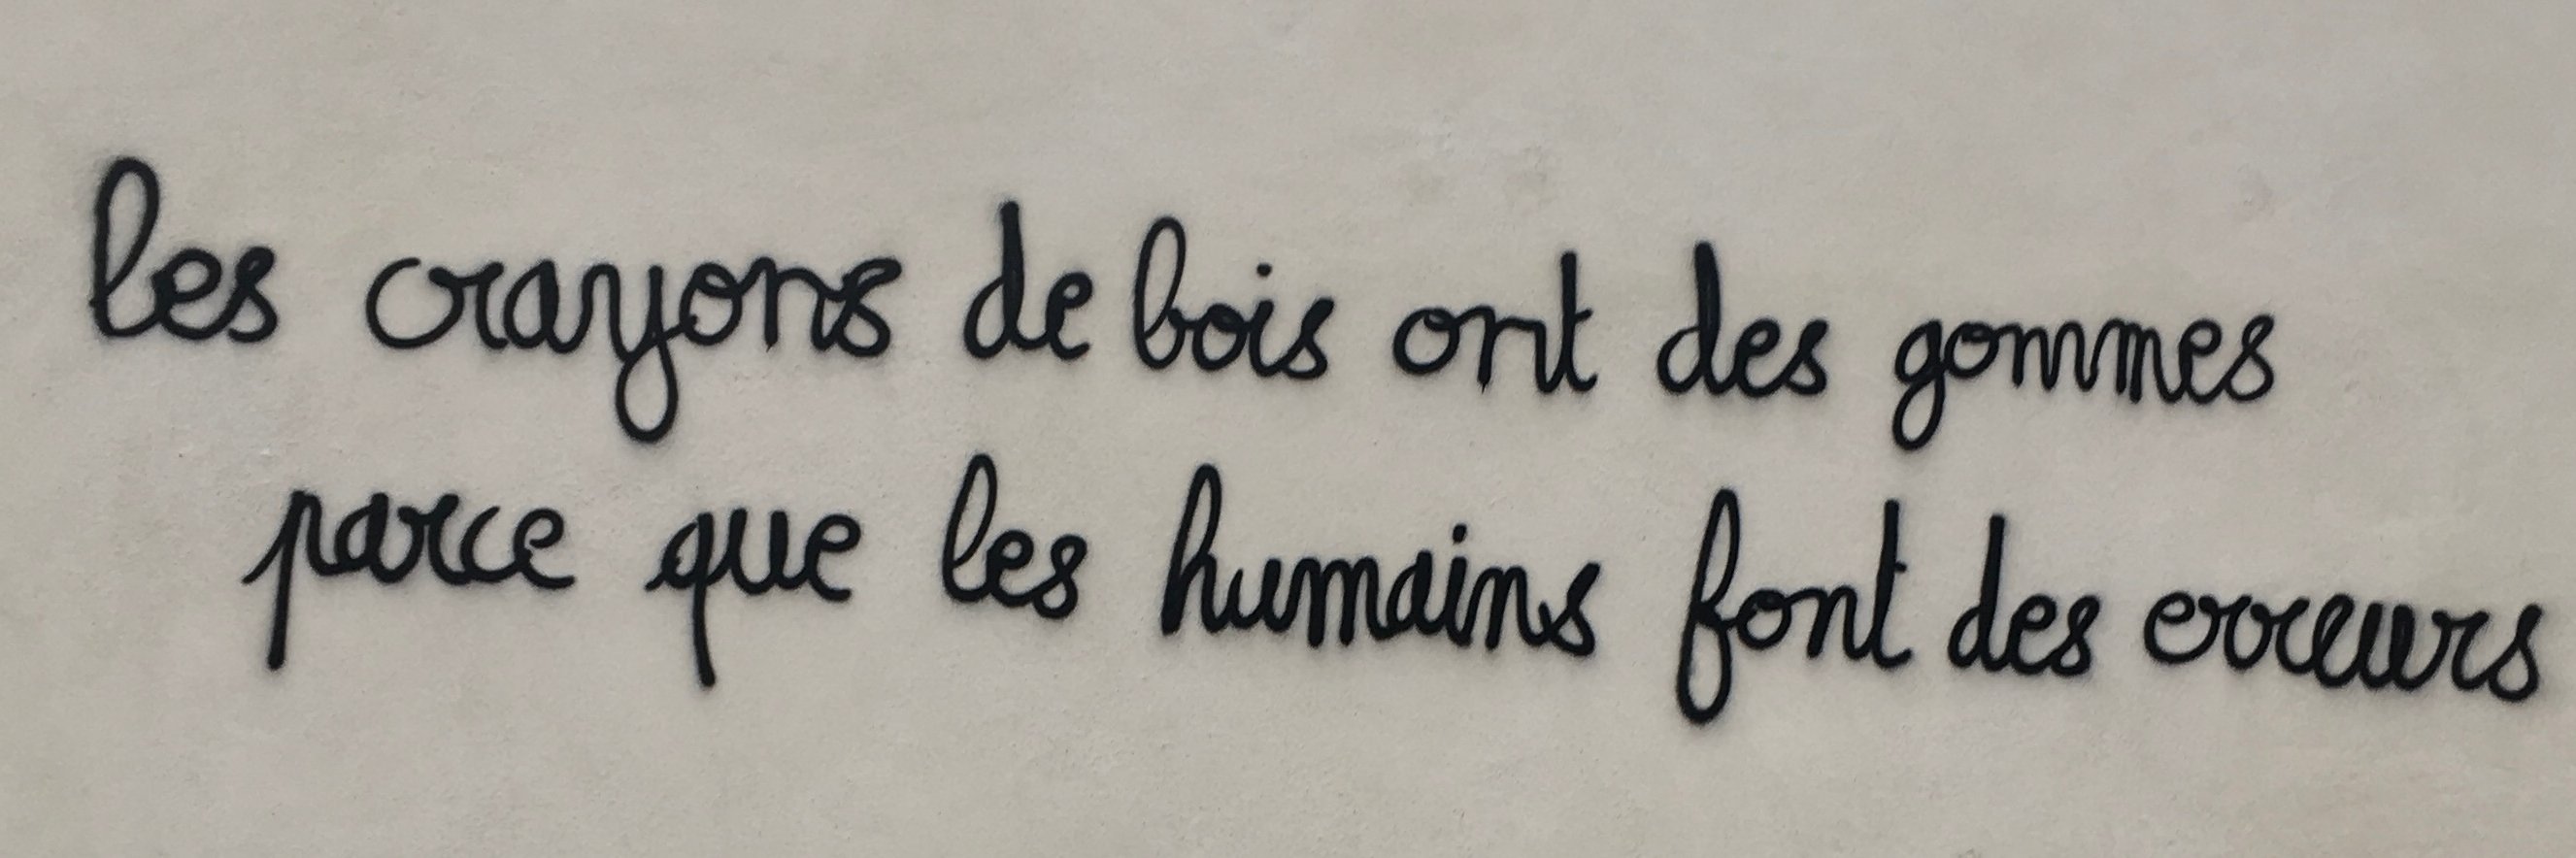 les crayons de bois ont des gommes
parce que les humains font des erreurs